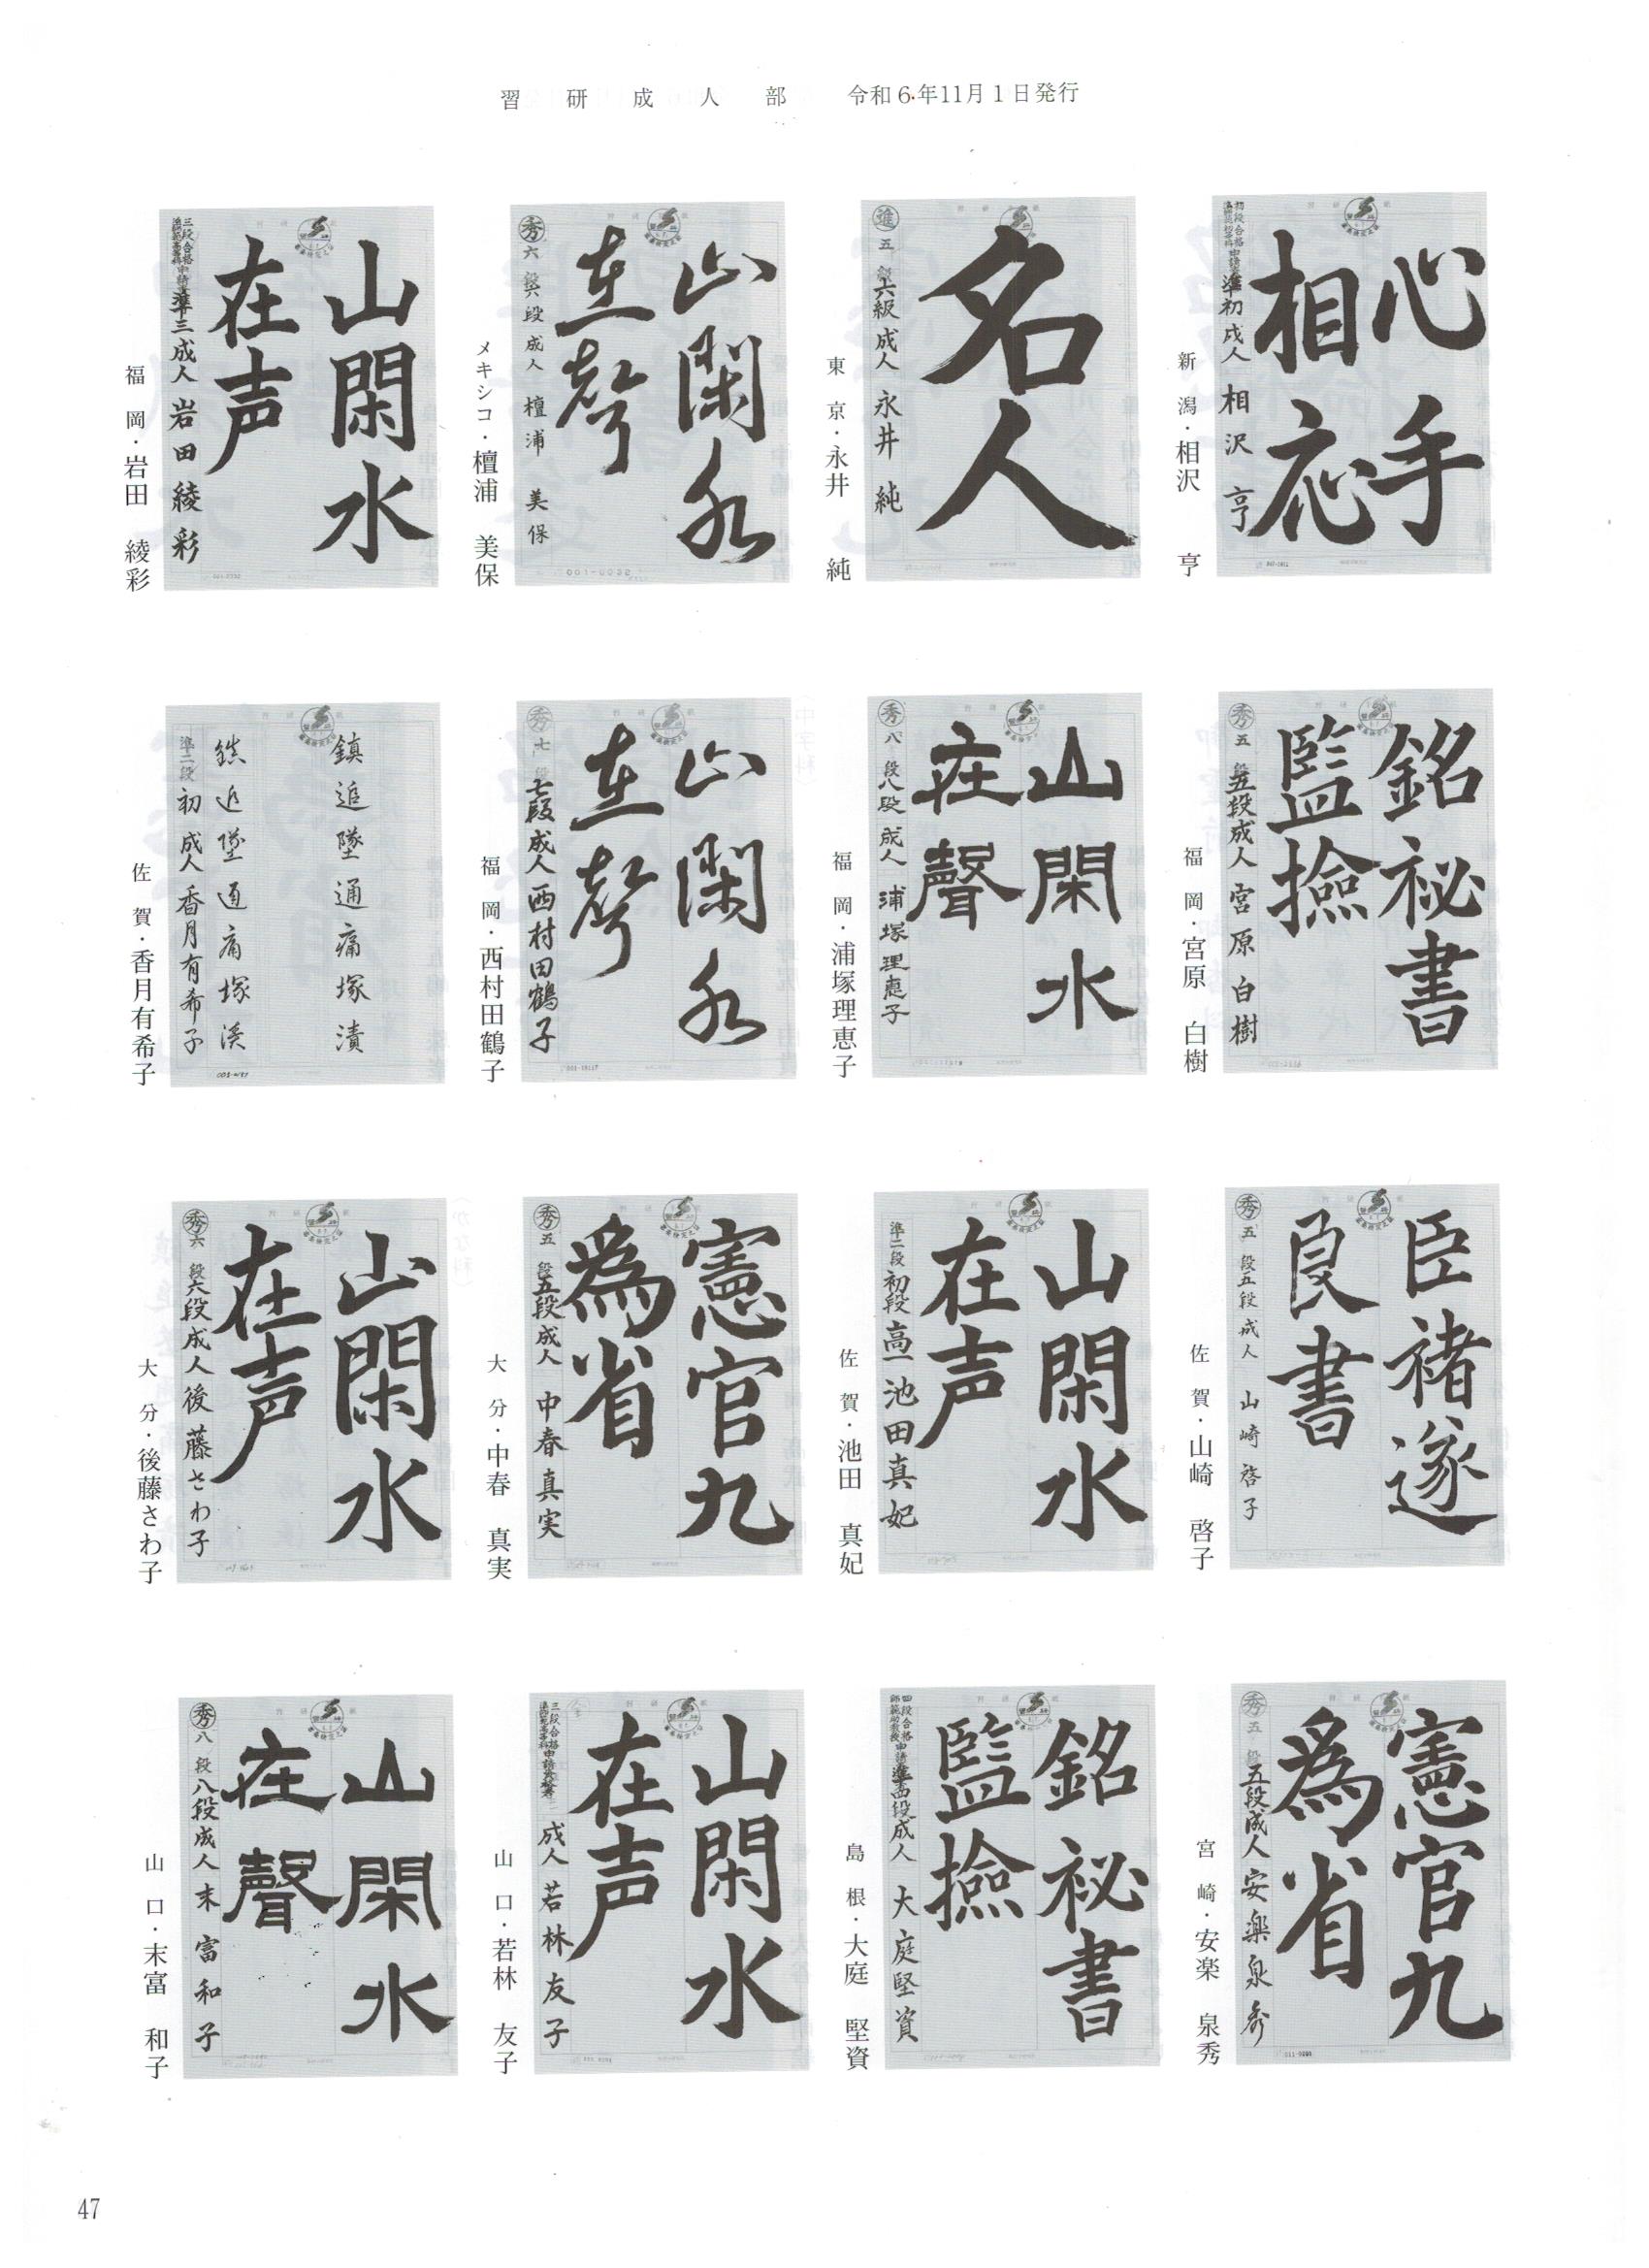 習研成人部 令和6年11月1日発行
心手
相応
初段合格
準初成人 相沢亨
新潟・相沢 亨
名人
進 五段 六級成人 永井純
東京・永井 純
山閑水
在聲
秀 六段 六段成人 檀浦美保
メキシコ・檀浦 美保
山閑水
在声
三段合格
準三成人 岩田綾彩
福岡・岩田 綾彩
銘祕書
監撿
秀 五段 五段成人 宮原白樹
福岡・宮原 白樹
山閑水
在聲
秀 八段 八段成人 浦塚理恵子
福岡・浦塚理恵子
山閑水
在聲
秀 七段 七段成人 西村田鶴子
福岡・西村田鶴子
鎮追墜通痛塚漬
鎮追墜通痛塚渓
準二段 初 成人 香月有希子
001-0187
佐賀・香月有希子
臣褚遂
良書
秀 五段 五段成人 山崎啓子
佐賀・山崎 啓子
山閑水
在声
準二段 初段 高一 池田真妃
佐賀・池田 真妃
憲官九
為省
秀 五段 五段成人 中春真実
大分・中春 真実
山閑水
在声
秀 六段 六段成人 後藤さわ子
大分・後藤さわ子
憲官九
為省
秀 五段 五段成人 安楽泉秀
宮崎・安楽 泉秀
銘祕書
監撿
四段合格
成人 大庭堅資
島根・大庭 堅資
山閑水
在声
三段合格
成人 若林友子
山口・若林 友子
山閑水
在聲
秀 八段 八段成人 末富和子
山口・末富 和子
47